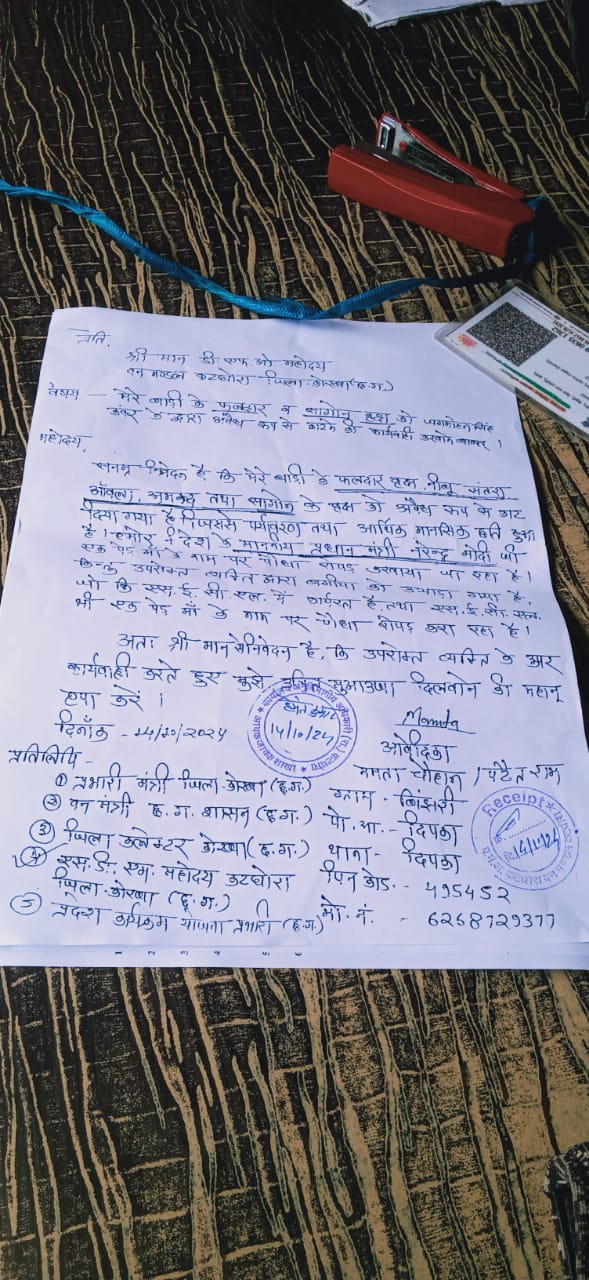 प्रति,
श्री मान डी एफ. ओ महोदय
वन मण्डल कटघोरा जिला कोरबा (छ.ग.)
विषय - मेरे बाड़ी के फलदार व सागोन वृक्ष को जगमोहन सिंह
कंवर के द्वारा अवैध रूप से काटने की कार्यवाही करवाने बाबत् ।
महोदय,
सनम्र निवेदन है, कि मेरे बाड़ी के फलदार वृक्ष नीबू, संतरा
आँवला, अमरूद तथा सागोन के वृक्ष को अवैध रूप से काट
दिया गया है जिससे पर्यावरण तथा आर्थिक मानसिक क्षती हुआ
है। हमारे देश के माननीय प्रधान मंत्री नरेन्द्र मोदी जी
एक पेड़ माँ के नाम पर पौधा रोपड़ करवाया जा रहा है।
किन्तु उपरोक्त व्यक्ति द्वारा बगीचा को उजाड़ा गया है,
जो कि एस. ई. सी. एल. में कार्यरत है, तथा एस. ई. सी. एल.
भी एक पेड़ माँ के नाम पर पौधा रोपड़ करा रहा है।
अतः श्री मान से निवेदन है, कि उपरोक्त व्यक्ति के ऊपर
कार्यवाही करते हुए मुझे उचित मुआउजा दिलवाने की महान्
कृपा करें ।
दिनाँक - 14/10/2024
Mamta
आवेदिका
ममता चौहान / पटैत राम
ग्राम - झिंझरी
पो. आ. - दिपका
थाना - दिपका
पिन कोड. - 495452
मो. नं. - 6268729377
प्रतिलिपि -
① प्रभारी मंत्री जिला-कोरबा (छ.ग.)
② वन मंत्री छ. ग. शासन (छ.ग.)
③ जिला कलेक्टर कोरबा (छ.ग.)
④ एस. डी. एम. महोदय कटघोरा
जिला-कोरबा (छ.ग.)
⑤ प्रदेश
प्रभारी (छ.ग.)
14/10/24
Receipt